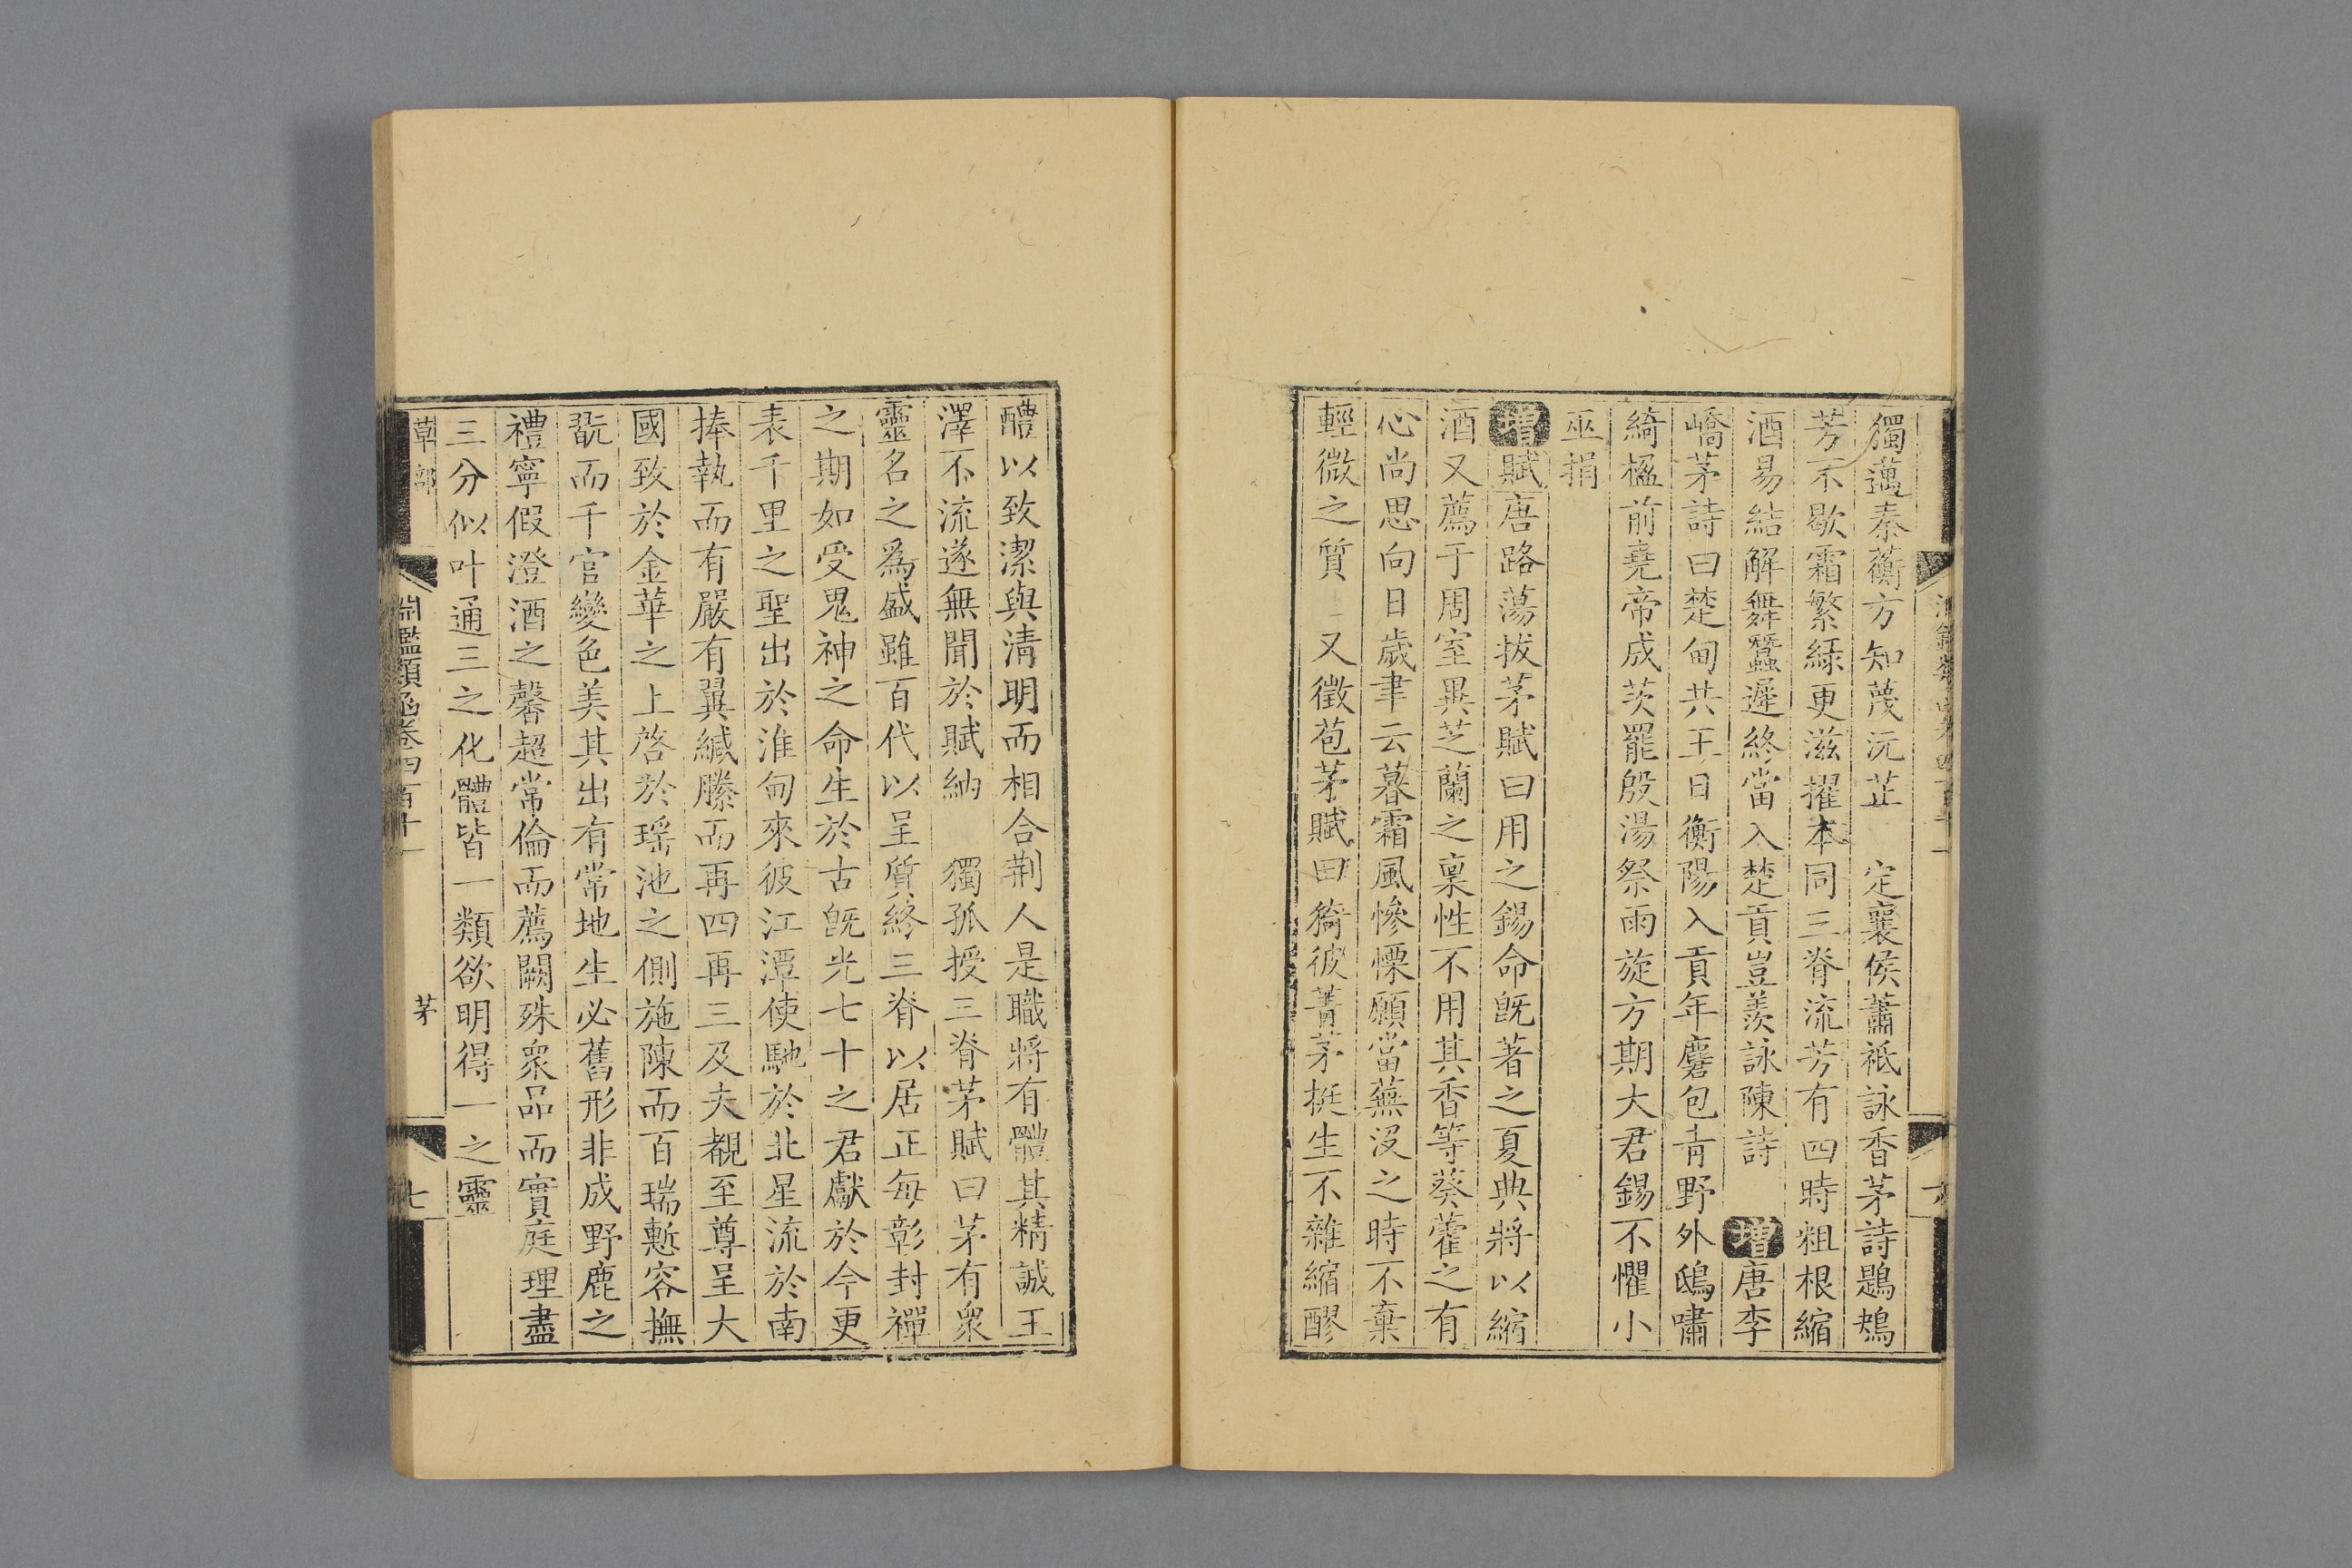 獨邁秦蘅方知蔑沅芷　定襄侯蕭祗詠香茅詩鶗鴂
芳不歇霜繁綠更滋擢本同三脊流芳有四時粗根縮
酒易結解舞蠶遲終當入楚貢豈羨詠陳詩　增唐李
嶠茅詩曰楚甸共王日衡陽入貢年麏包青野外鴟嘯
綺楹前堯帝成茨罷殷湯祭雨旋方期大君錫不懼小
巫捐
增賦唐路蕩拔茅賦曰用之錫命旣著之夏典將以縮
酒又薦于周室異芝蘭之稟性不用其香等葵藿之有
心尚思向日歲聿云暮霜風慘慄願當蕪沒之時不棄
輕微之質　又徵苞茅賦曰猗彼菁茅挺生不雜縮醪
醴以致潔與清明而相合荆人是職將有體其精誠王
澤不流遂無聞於賦納　獨孤授三脊茅賦曰茅有衆
靈名之爲盛雖百代以呈質終三脊以居正每彰封禪
之期如受鬼神之命生於古旣光七十之君獻於今更
表千里之聖出於淮甸來彼江潭使馳於北星流於南
捧執而有嚴有翼緘縢而再四再三及夫覩至尊呈大
國致於金華之上啓於瑤池之側施陳而百瑞慙容撫
翫而千官變色美其出有常地生必舊形非成野鹿之
禮寧假澄酒之馨超常倫而薦闕殊衆品而實庭理盡
三分似叶通三之化體皆一類欲明得一之靈
草部　淵鑑類函卷四百十一　茅　七